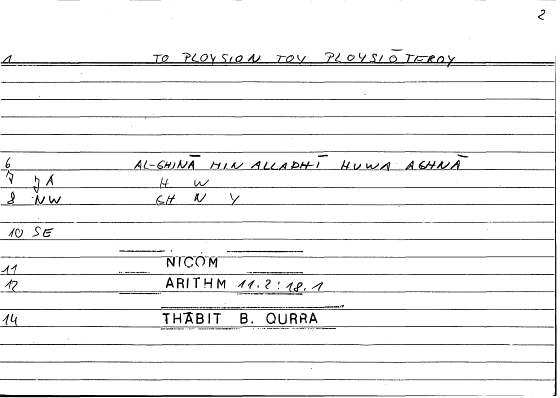 2
1 TO PLOYSION TOY PLOYSIŌTEROY
6 AL-GHINĀ MIN ALLADHĪ HUWA AGHNĀ
7 JA H W
8 NW GH N Y
10 SE
11 NICOM
12 ARITHM 11.2:18.1
14 THĀBIT B. QURRA